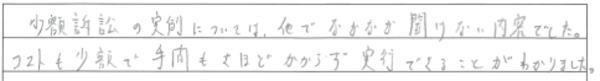 少額訴訟の実例については、他でなかなか聞けない内容でした。
コストも少額で手間もさほどかからず実行できることがわかりました。